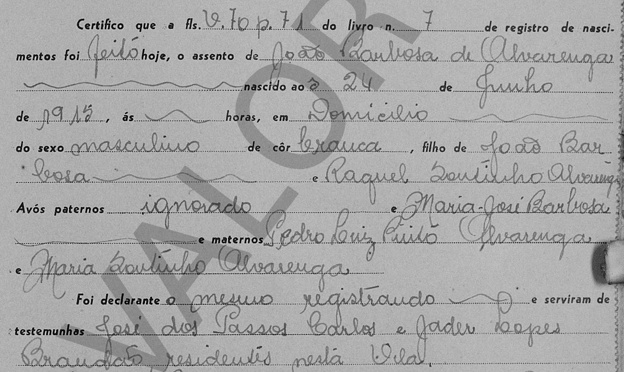 Certifico que a fls. V. 70 p. 71 do livro n. 7 de registro de nasci-
mentos foi feito hoje, o assento de João Barbosa de Alvarenga
nascido aos 24 de Junho
de 1915, ás horas, em Domicilio
do sexo masculino de côr branca, filho de João Bar
bosa e Raquel Coutinho Alvareng
Avós paternos ignorado e Maria José Barbosa
e maternos Pedro Luiz Pinto Alvarenga
e Maria Coutinho Alvarenga
Foi declarante o mesmo registrando e serviram de
testemunhas José dos Passos Carlos e Jader Lopes
Brandão residentes nesta Vila.
VALOR